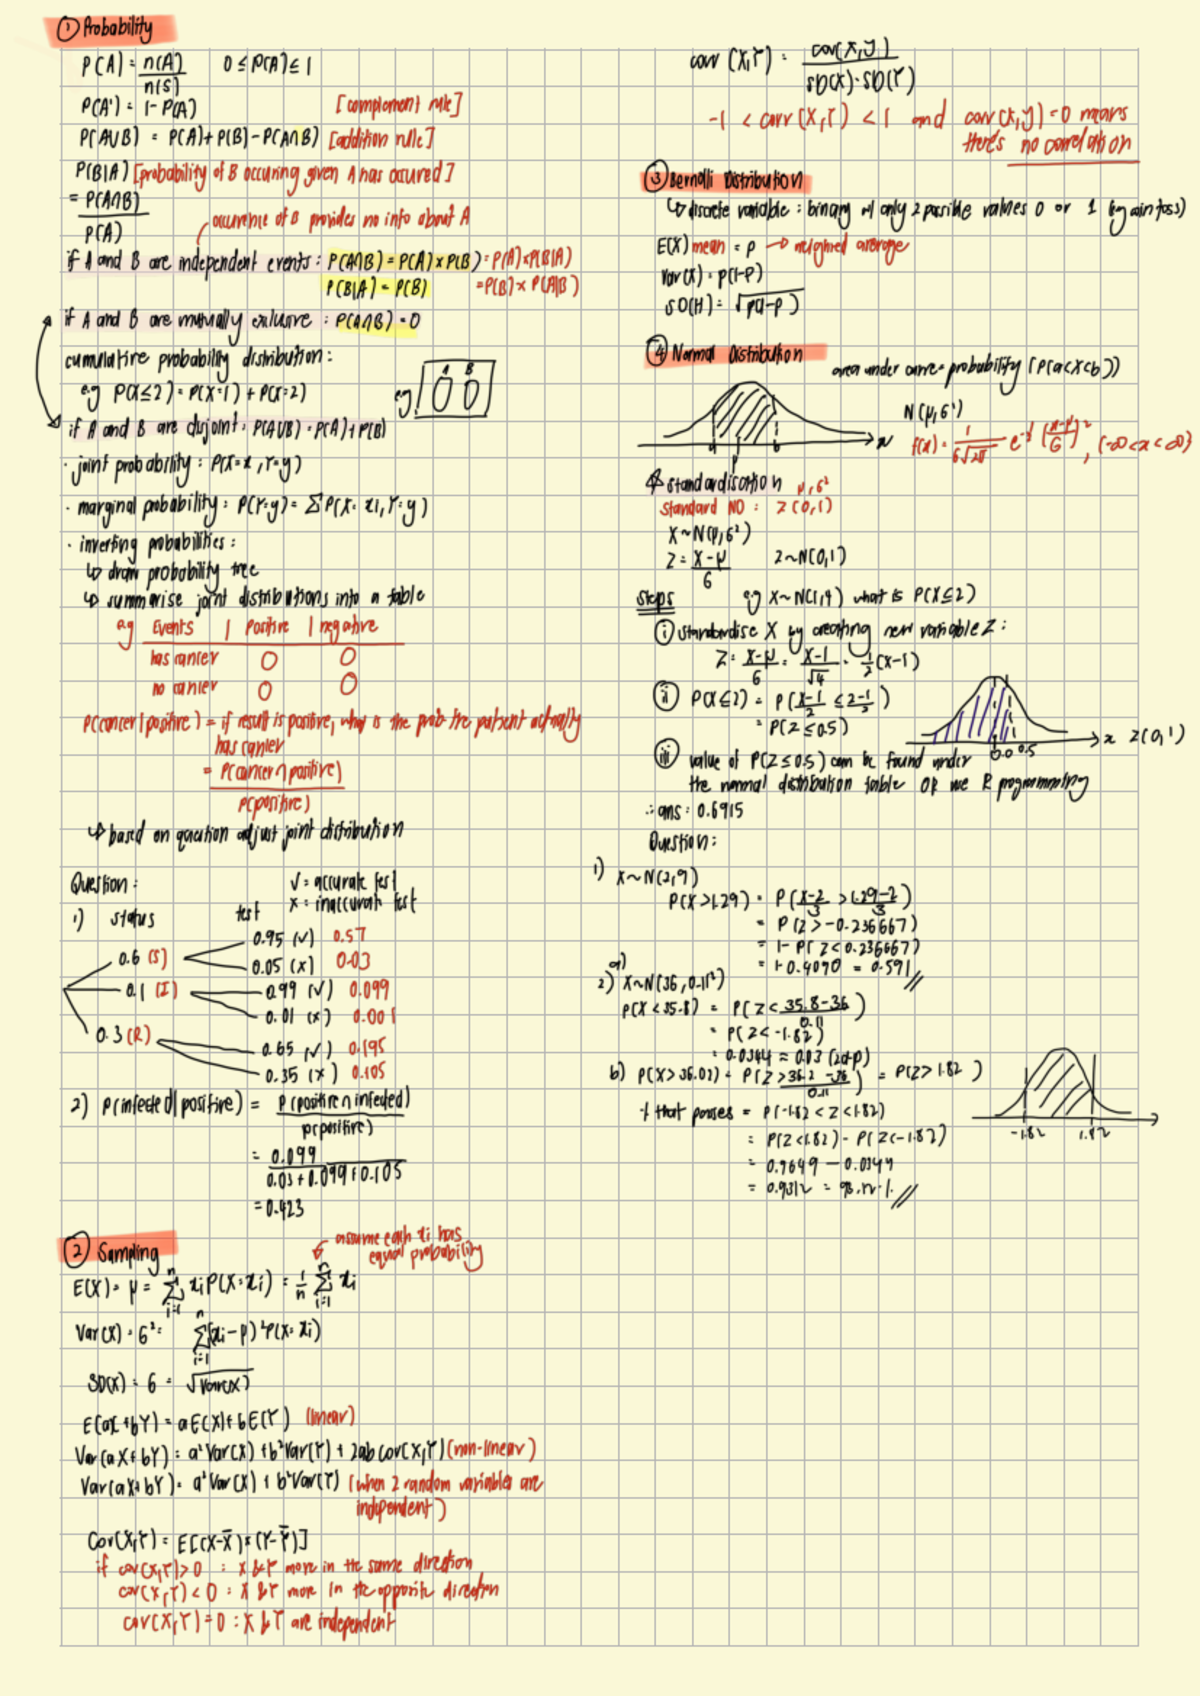 ① Probability
P(A) = n(A)/n(S)    0 ≤ P(A) ≤ 1
P(A') = 1 - P(A)    [complement rule]
P(A∪B) = P(A) + P(B) - P(A∩B) [addition rule]
P(B|A) [probability of B occuring given A has occured]
= P(A∩B)/P(A)
occurence of B provides no info about A
if A and B are independent events : P(A∩B) = P(A) x P(B) = P(A) x P(B|A)
P(B|A) = P(B)    = P(B) x P(A|B)
if A and B are mutually exclusive : P(A∩B) = 0
cumulative probability distribution :
e.g P(X≤2) = P(X=1) + P(X=2)
eg A B
if A and B are disjoint : P(A∪B) = P(A) + P(B)
· joint probability : P(X=x, Y=y)
· marginal probability : P(Y=y) = Σ P(X=xi, Y=y)
· inverting probabilities :
↳ draw probability tree
↳ summarise joint distributions into a table
eg Events | Positive | negative
has cancer 0 0
no cancer 0 0
P(cancer | positive) = if result is positive, what is the prob the patient actually
has cancer
= P(cancer ∩ positive)/P(positive)
↳ based on question adjust joint distribution
Question :
√ = accurate test
x = inaccurate test
1) status    test
0.6 (S)
0.95 (√) 0.57
0.05 (x) 0.03
0.1 (I)
0.99 (√) 0.099
0.01 (x) 0.001
0.3 (R)
0.65 (√) 0.195
0.35 (x) 0.105
2) P(infected | positive) = P(positive ∩ infected)/P(positive)
= 0.099/0.03 + 0.099 + 0.105
= 0.423
② Sampling
assume each xi has
equal probability
E(X) = μ = Σ i=1 n xi P(X=xi) = 1/n Σ i=1 n xi
Var(X) = 6² = Σ i=1 n (xi - μ)² P(X=xi)
SD(X) = 6 = √Var(X)
E(aX + bY) = aE(X) + bE(Y) (linear)
Var(aX + bY) = a² Var(X) + b² Var(Y) + 2ab cov(X,Y) (non-linear)
Var(aX + bY) = a² Var(X) + b² Var(Y) (when 2 random variables are
independent)
Cov(X,Y) = E[(X-X̄) x (Y-Ȳ)]
if cov(X,Y) > 0 : X & Y move in the same direction
cov(X,Y) < 0 : X & Y move in the opposite direction
cov(X,Y) = 0 : X & Y are independent
corr (X,Y) = cov(X,y)/SD(X)·SD(Y)
-1 < corr (X,Y) < 1 and corr(x,y) = 0 means
there's no correlation
③ Bernolli Distribution
↳ discrete variable : binary w/ only 2 possible values 0 or 1 (eg coin toss)
E(X) mean = p → weighted average
Var(X) = p(1-p)
SD(H) = √p(1-p)
④ Normal Distribution
area under curve = probability (P(a<X<b))
N(μ,6²)
f(x) = 1/6√2π e^-½ (x-μ/6)², (-∞ < x < ∞)
a μ b x
standardisation
μ, 6²
Standard ND : Z(0,1)
X ~ N(μ,6²)
Z = X - μ/6    Z ~ N(0,1)
Steps    eg X ~ N(1,4) what is P(X≤2)
(i) standardise X by creating new variable Z :
Z = X-μ/6 = X-1/√4 = 1/2 (X-1)
(ii) P(X≤2) = P(X-1/2 ≤ 2-1/2)
= P(Z ≤ 0.5)
0.0 0.5 x Z(0,1)
(iii) value of P(Z≤0.5) can be found under
the normal distribution table OR use R programming
∴ ans : 0.6915
Question :
1) X ~ N(2,9)
P(X > 1.29) = P(X-2/3 > 1.29-2/3)
= P(Z > -0.236667)
= 1 - P(Z < 0.236667)
= 1 - 0.4090 = 0.591
a)
2) X ~ N(36, 0.11²)
P(X < 35.8) = P(Z < 35.8-36/0.11)
= P(Z < -1.82)
= 0.0344 ≈ 0.03 (2dp)
b) P(X > 36.02) = P(Z > 36.2 - 36/0.11) = P(Z > 1.82)
% that passes = P(-1.82 < Z < 1.82)
= P(Z < 1.82) - P(Z < -1.82)
= 0.9649 - 0.0344
-1.82 1.82